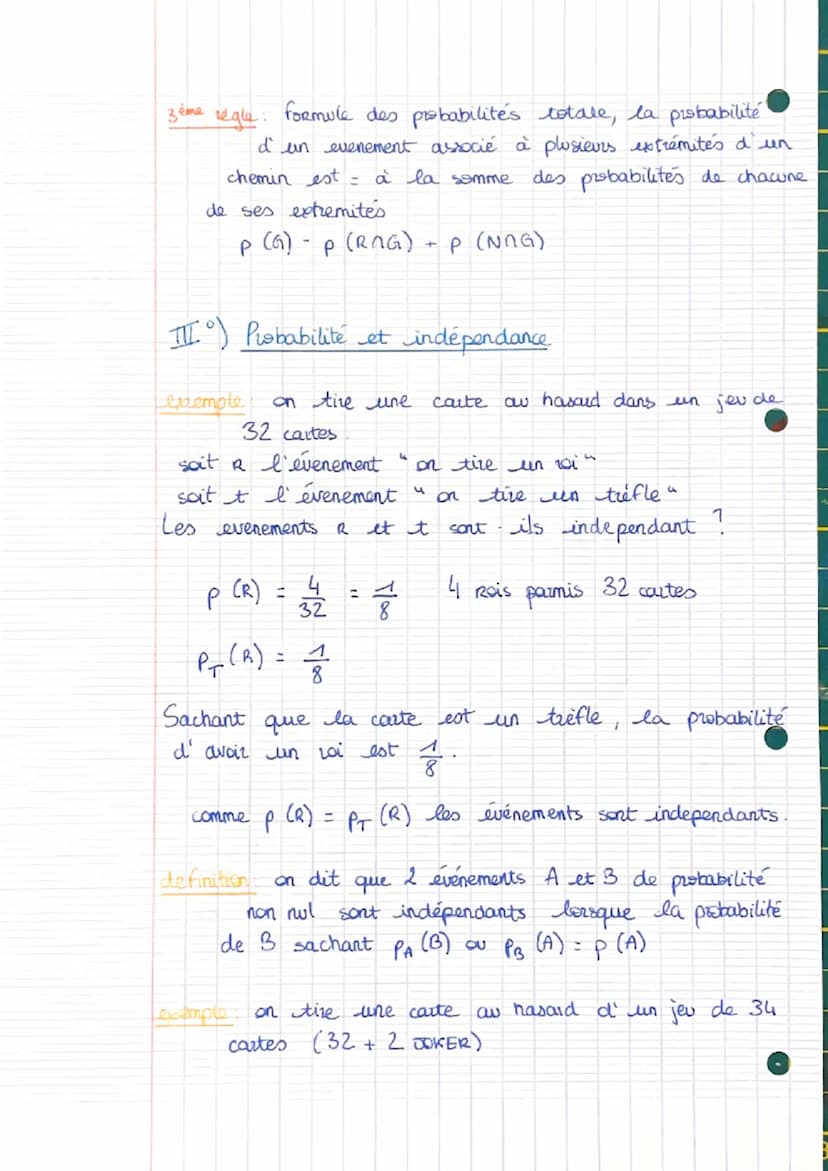 3ème régle : formule des probabilités totale, la probabilité
d'un evenement associé à plusieurs extrémités d'un
chemin est = à la somme des probabilités de chacune
de ses extremités
p (G) - p (R∩G) + p (N∩G)
III°) Probabilité et indépendance
exemple : on tire une carte au hasard dans un jeu de
32 cartes.
soit R l'évenement " on tire un roi "
soit t l'évenement " on tire un trèfle "
Les evenements R et t sont - ils independant ?
p (R) = 4/32 = 1/8 4 Rois parmis 32 cartes
P_T (R) = 1/8
Sachant que la carte est un trèfle, la probabilité
d'avoir un roi est 1/8.
comme p (R) = P_T (R) les événements sont independants.
definition : on dit que 2 événements A et B de probabilité
non nul sont indépendants lorsque la probabilité
de B sachant P_A (B) ou P_B (A) = p (A)
exemple : on tire une carte au hasard d'un jeu de 34
cartes (32 + 2 JOKER)